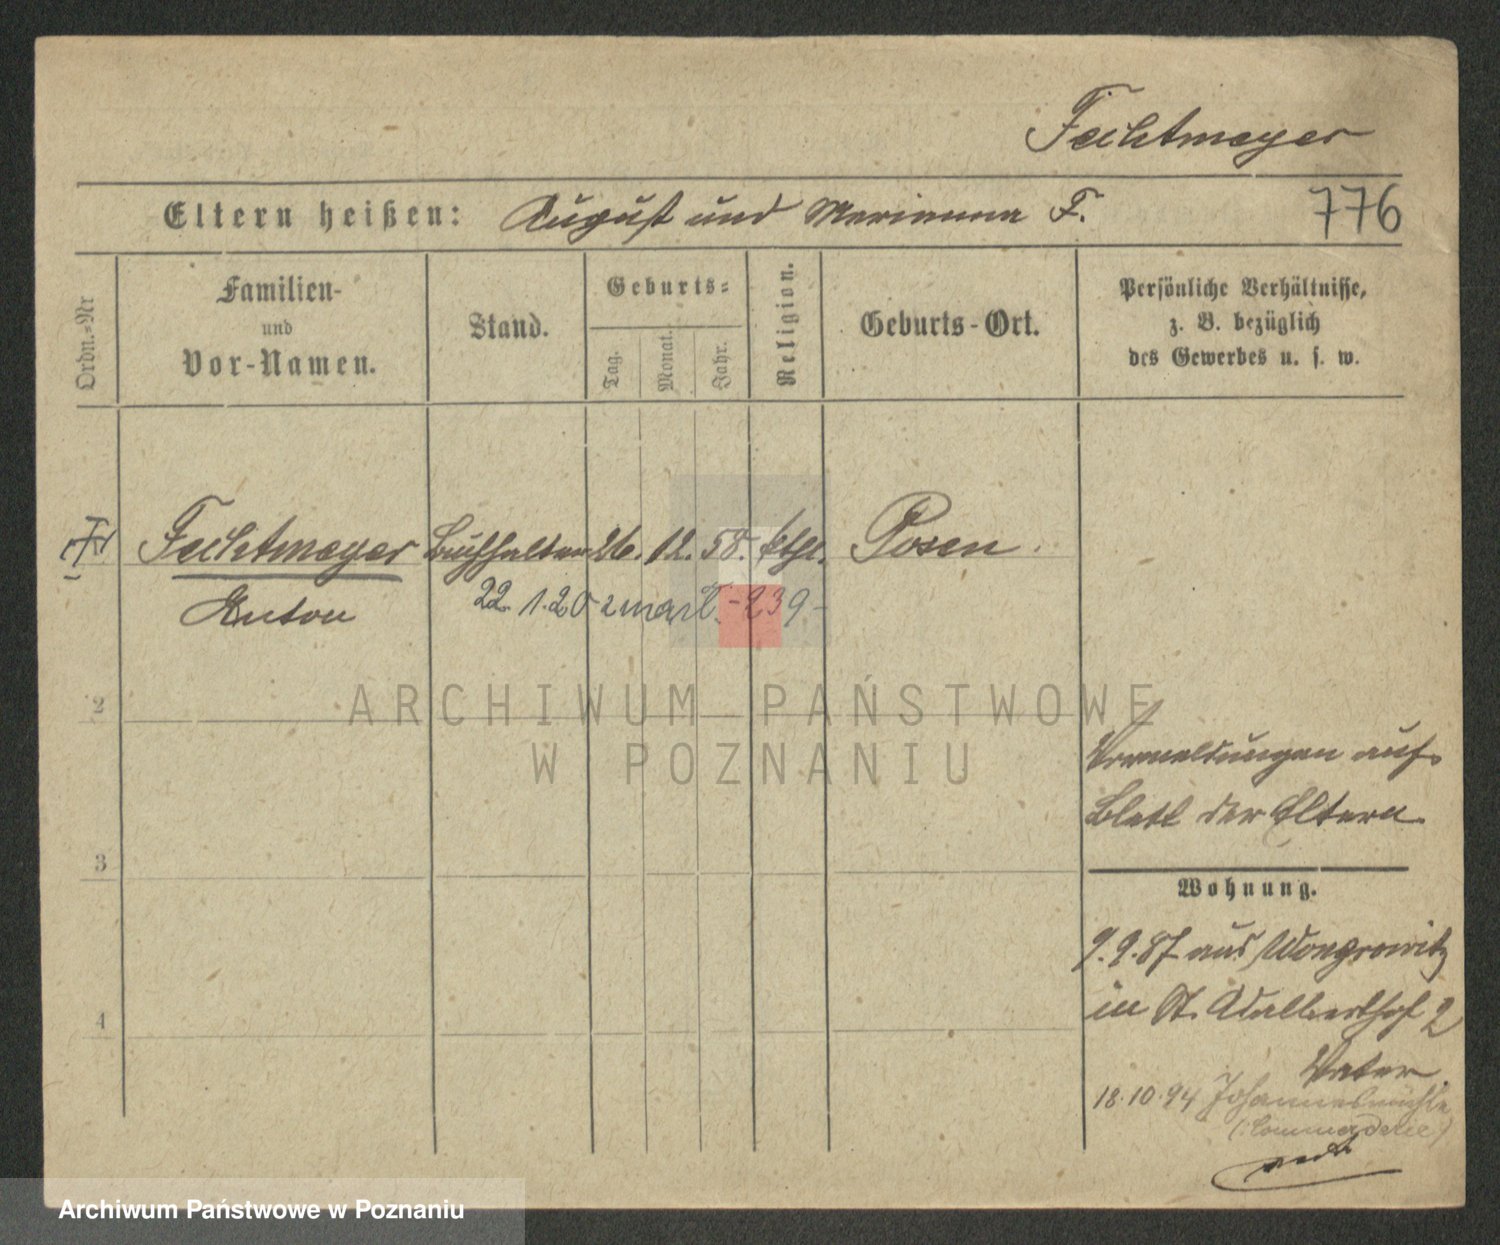 Fechtmeyer
Eltern heißen: August und Marianna F.
776
Ordn.=Nr
Familien-
und
Vor-Namen.
Stand.
Geburts=
Tag.
Monat.
Jahr.
Religion.
Geburts-Ort.
Persönliche Verhältnisse,
z. B. bezüglich
des Gewerbes u. s. w.
Fechtmeyer Buchhalter 26. 12. 58. kthl. Posen.
Anton
22. 1. 20 zmarł. - 239 -
ARCHIWUM PAŃSTWOWE
W POZNANIU
2
Vermeldungen auf
Blatt der Eltern
3
Wohnung.
9.9.87 aus Wongrowitz
in St. Adalberthof 2
4
Vater
18.10.94 Johannesmühle
(: Commenderie)
Archiwum Państwowe w Poznaniu